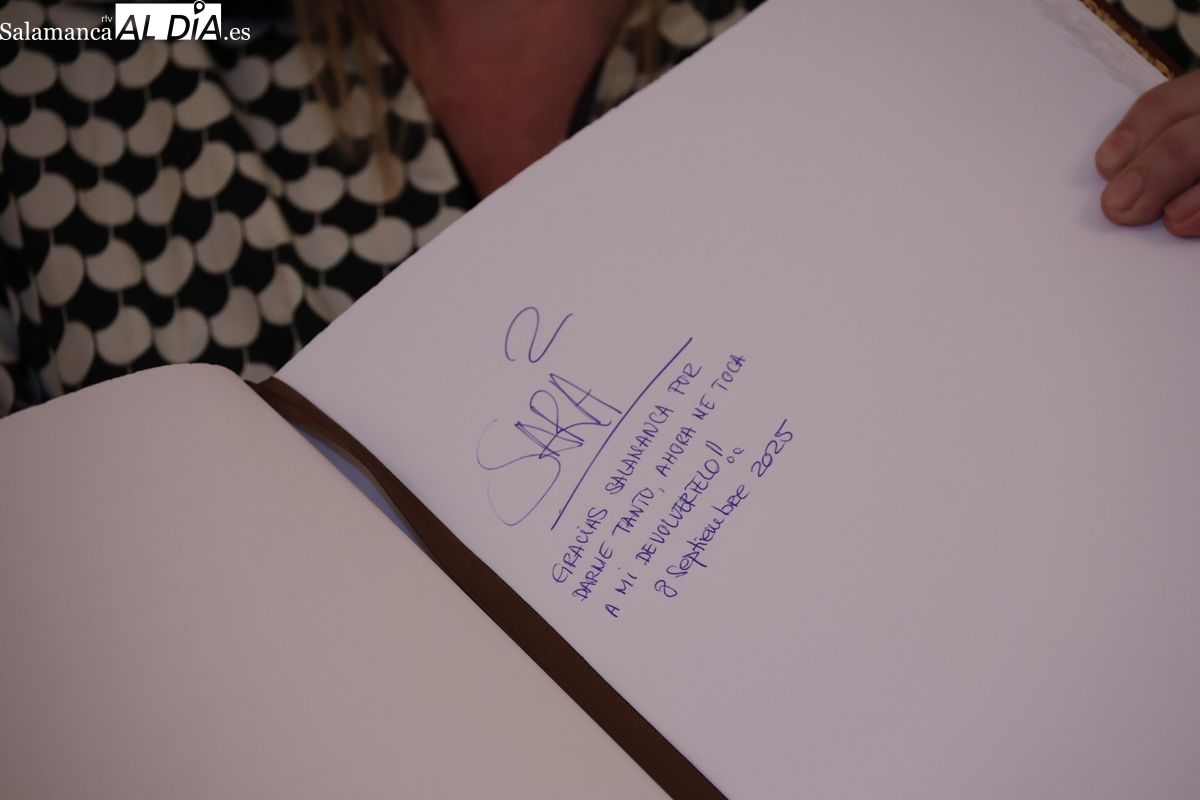 Salamanca rtv AL DÍA.es
2
SARA
GRACIAS SALAMANCA POR
DARME TANTO, AHORA ME TOCA
A MI DEVOLVERTELO!!
8 Septiembre 2025